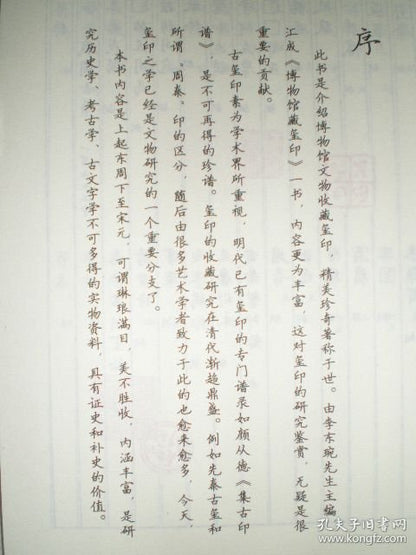 序
此书是介绍博物馆文物收藏玺印，精美珍奇著称于世。由李东琬先生主编
江成《博物馆藏玺印》一书，内容更为丰富，这对玺印的研究鉴赏，无疑是很
重要的贡献。
古玺印素为学术界所重视，明代已有玺印的专门谱录如顾从德《集古印
谱》，是不可再得的珍谱。玺印的收藏研究在清代渐趋鼎盛。例如先秦古玺和
所谓“周秦”印的区分，随后由很多艺术学者致力于此的也愈来愈多，今天，
玺印之学已经是文物研究的一个重要分支了。
本书内容是上起东周下至宋元，可谓琳琅满目，美不胜收，内涵丰富，是研
究历史学、考古学、古文字学不可多得的实物资料，具有证史和补史的价值。
孔夫子旧书网
www.kongfz.com